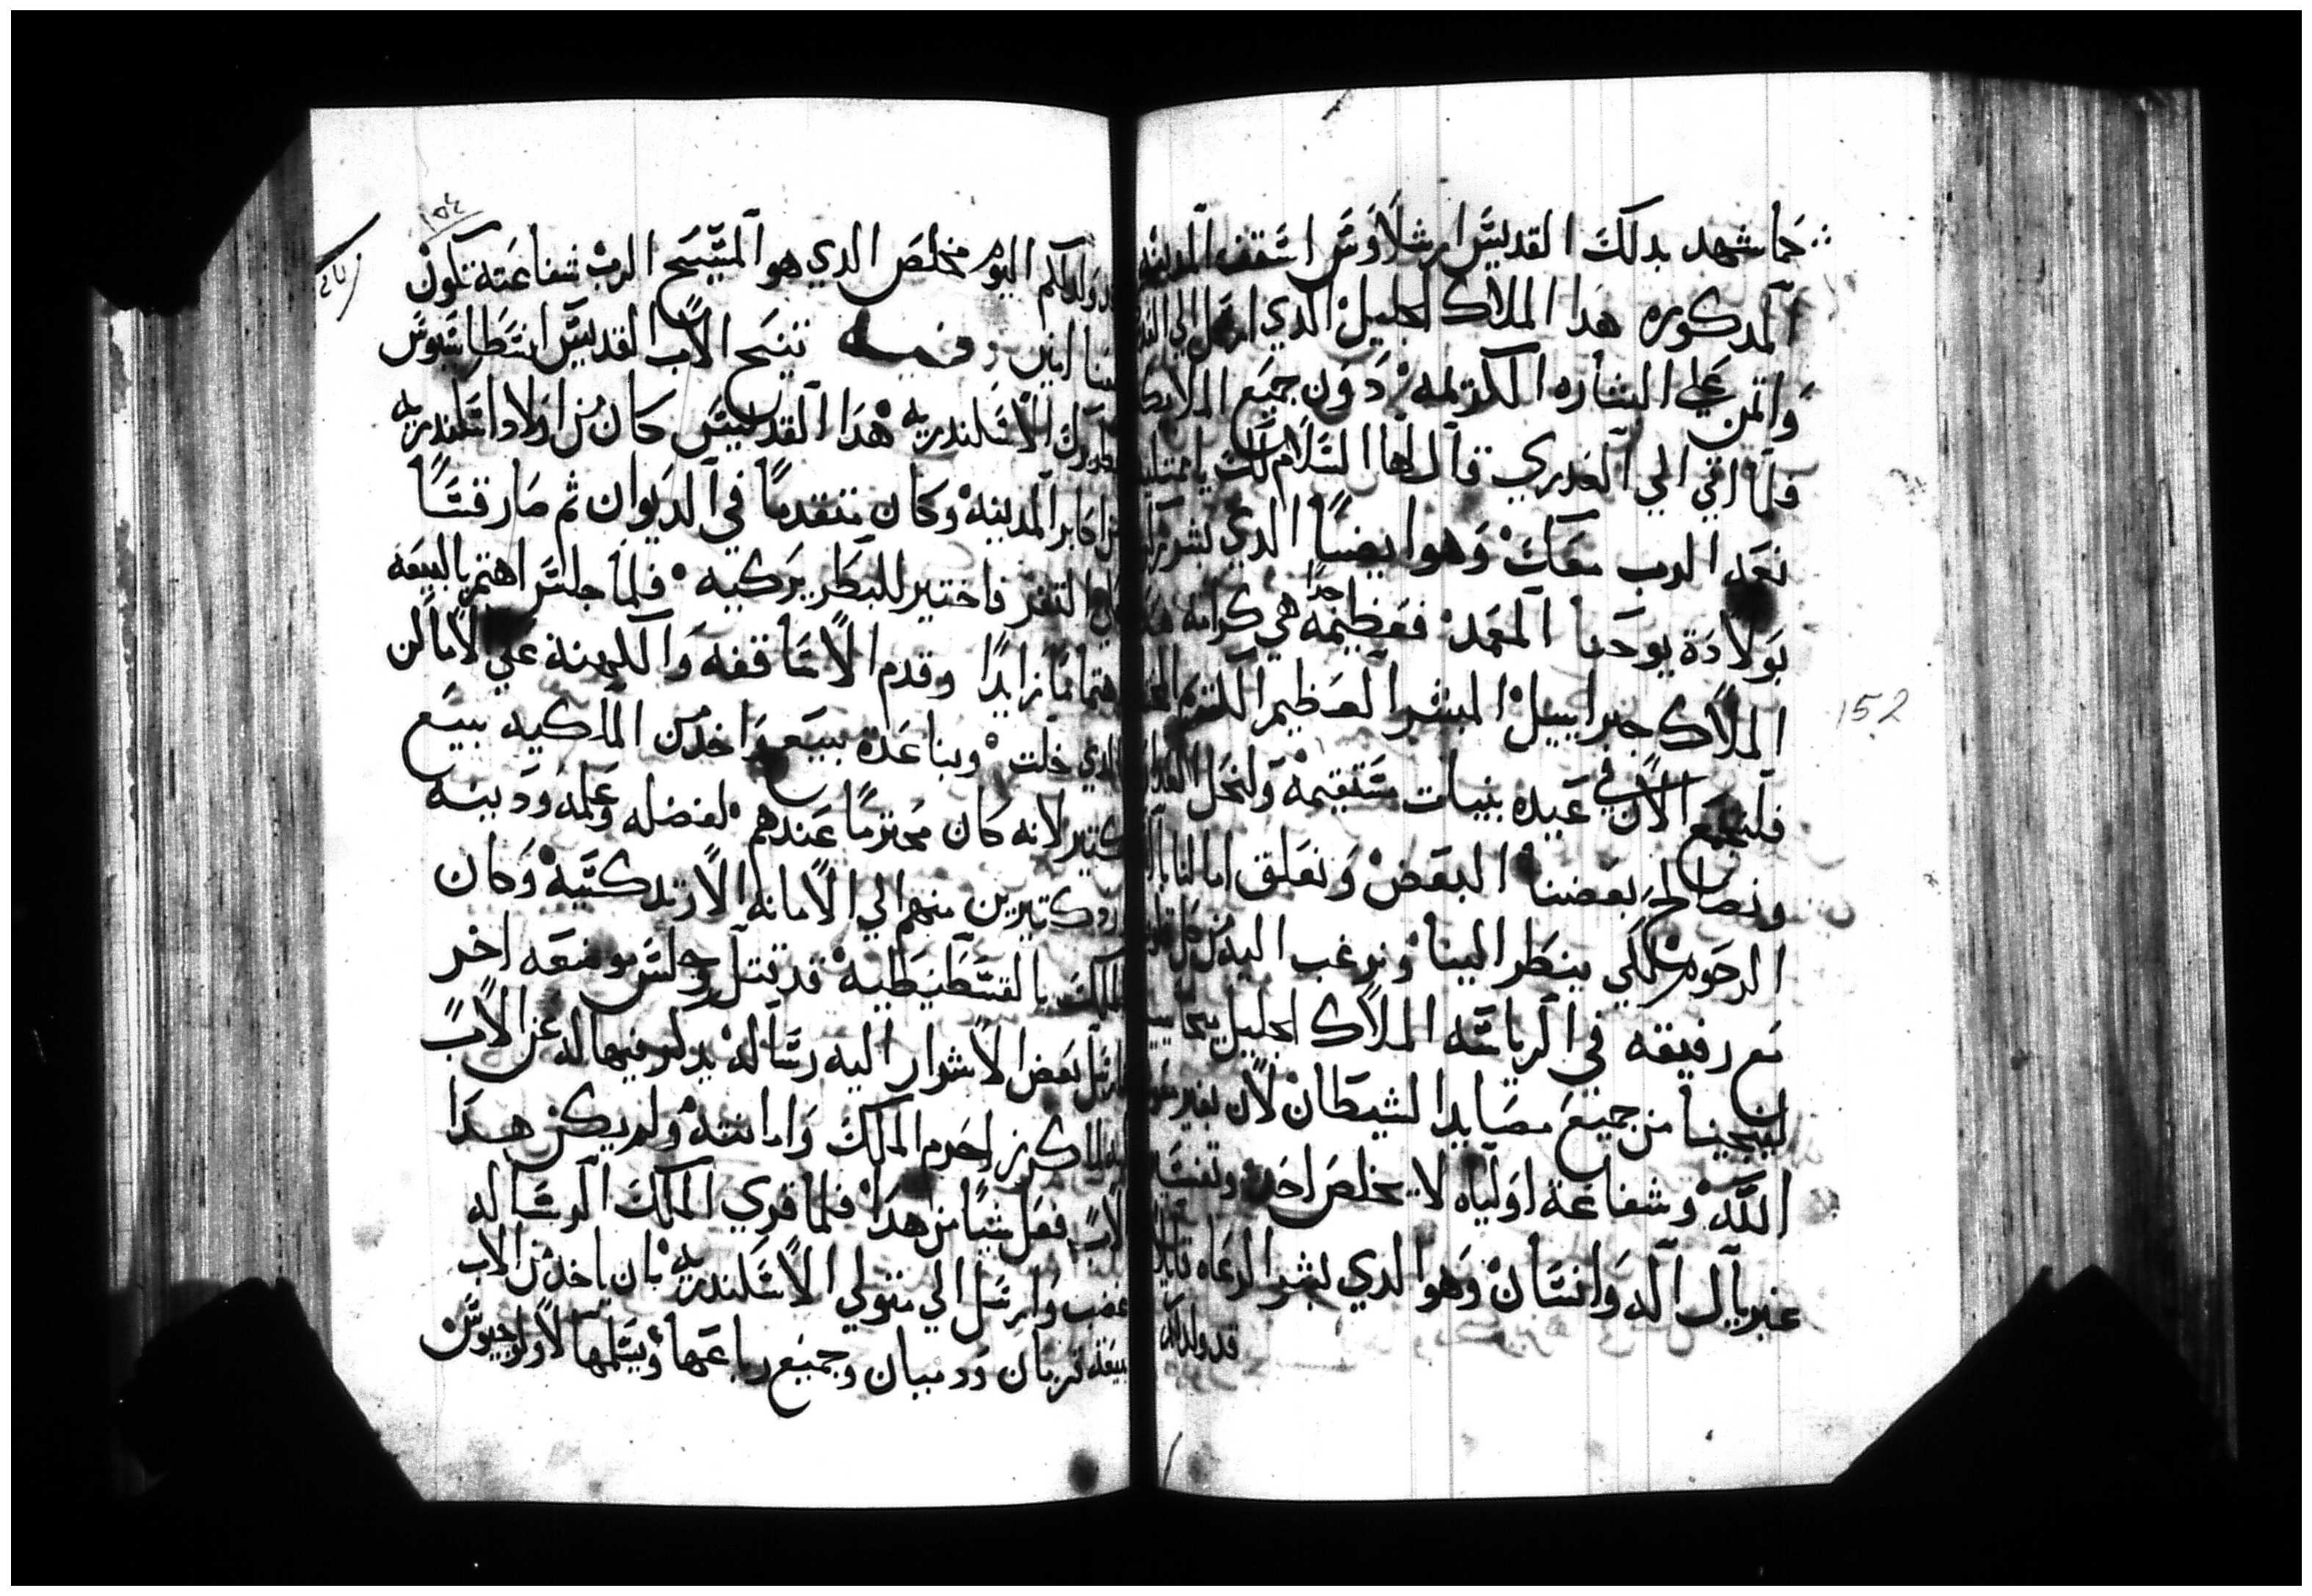 كما شهد بدلك القديس ارشلاوس اسقف المدينه
المدكوره هدا الملاك الجليل الدي ارسل الي
واتمن علي البشاره الكريمه دون جميع الملايكه
فلما اتي الي العدري قال لها السلام لك يا ممتليه
نعمه الرب معك وهو ايضاً الدي بشر زكريا
بولادة يوحنا المعمد فعظيمه جداً هي كرامة هدا
الملاك جبراييل المبشر العظيم
فلنجمع الان في عيده بنيات مستقيمه
ونصالح بعضنا البعض ونعلق امالنا
الرحوم لكي ينظر الينا ونرغب اليه من كل
مع رفيقه في الرياسه الملاك الجليل ميخاييل
لينجينا من جميع مصايد الشيطان لان بغير
الله وشفاعة اولياه لا يخلص احد وتفسير
غبريال اله وانسان وهو الدي بشر الرعاه قايلاً
قد ولد لكم
152
١٥٤
قد ولد لكم اليوم مخلص الدي هو المسيح الرب شفاعته تكون
معنا امين وفيه تنيح الاب القديس انسطاسيوس
بطريرك الاسكندريه هدا القديس كان من اولاد اسكندريه
من اكابر المدينه وكان متقدماً في الديوان ثم صار قساً
علي التغر فاختير للبطريركيه فلما جلس اهتم بالبيعه
اهتماماً زايداً وقدم الاساقفه والكهنة علي الاماكن
الدي خلت وبنا عدة بيع واخد من الملكيه بيع
كتير لانه كان محترماً عندهم لفضله وعلمه ودينه
ورد كتيرين منهم الي الامانه الارتدكسيه وكان
الملك بالقسطنطنيه قد قتل وجلس موضعه اخر
فارسل بعض الاشرار اليه رساله يدكر فيها له عن الاب
كرز احرم الملك وامانته ولم يكن هدا
الاب فعل شياً من هدا فلما قري الملك الرساله
غضب وارسل الي متولي الاسكندريه بان ياخد من الاب
بيعة قزمان ودميان وجميع رباعها ويسلمها لاولوجيوس